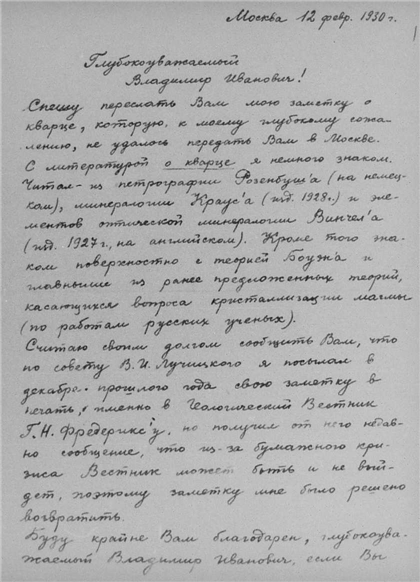 Москва 12 февр. 1930 г.
Глубокоуважаемый
Владимир Иванович!
Спешу переслать Вам мою заметку о
кварце, которую, к моему глубокому сожа-
лению, не удалось передать Вам в Москве.
С литературой о кварце я немного знаком.
Читал - из петрографии Розенбуш'а (на немец-
ком), минералогии Краус'а (изд. 1928 г.) и эле-
ментов оптической минералогии Винчел'а
(изд. 1927 г., на английском). Кроме того зна-
ком поверхностно с теорией Боуэн'а и
главными из ранее предложенных теорий,
касающихся вопроса кристаллизации магмы
(по работам русских ученых).
Считаю своим долгом сообщить Вам, что
по совету В. И. Лучицкого я посылал в
декабре прошлого года свою заметку в
печать, именно в Геологический Вестник
Г. Н. Фредерикс'у, но получил от него недав-
но сообщение, что из-за бумажного кри-
зиса Вестник может быть и не вый-
дет, поэтому заметку мне было решено
возвратить.
Буду крайне Вам благодарен, глубокоува-
жаемый Владимир Иванович, если Вы